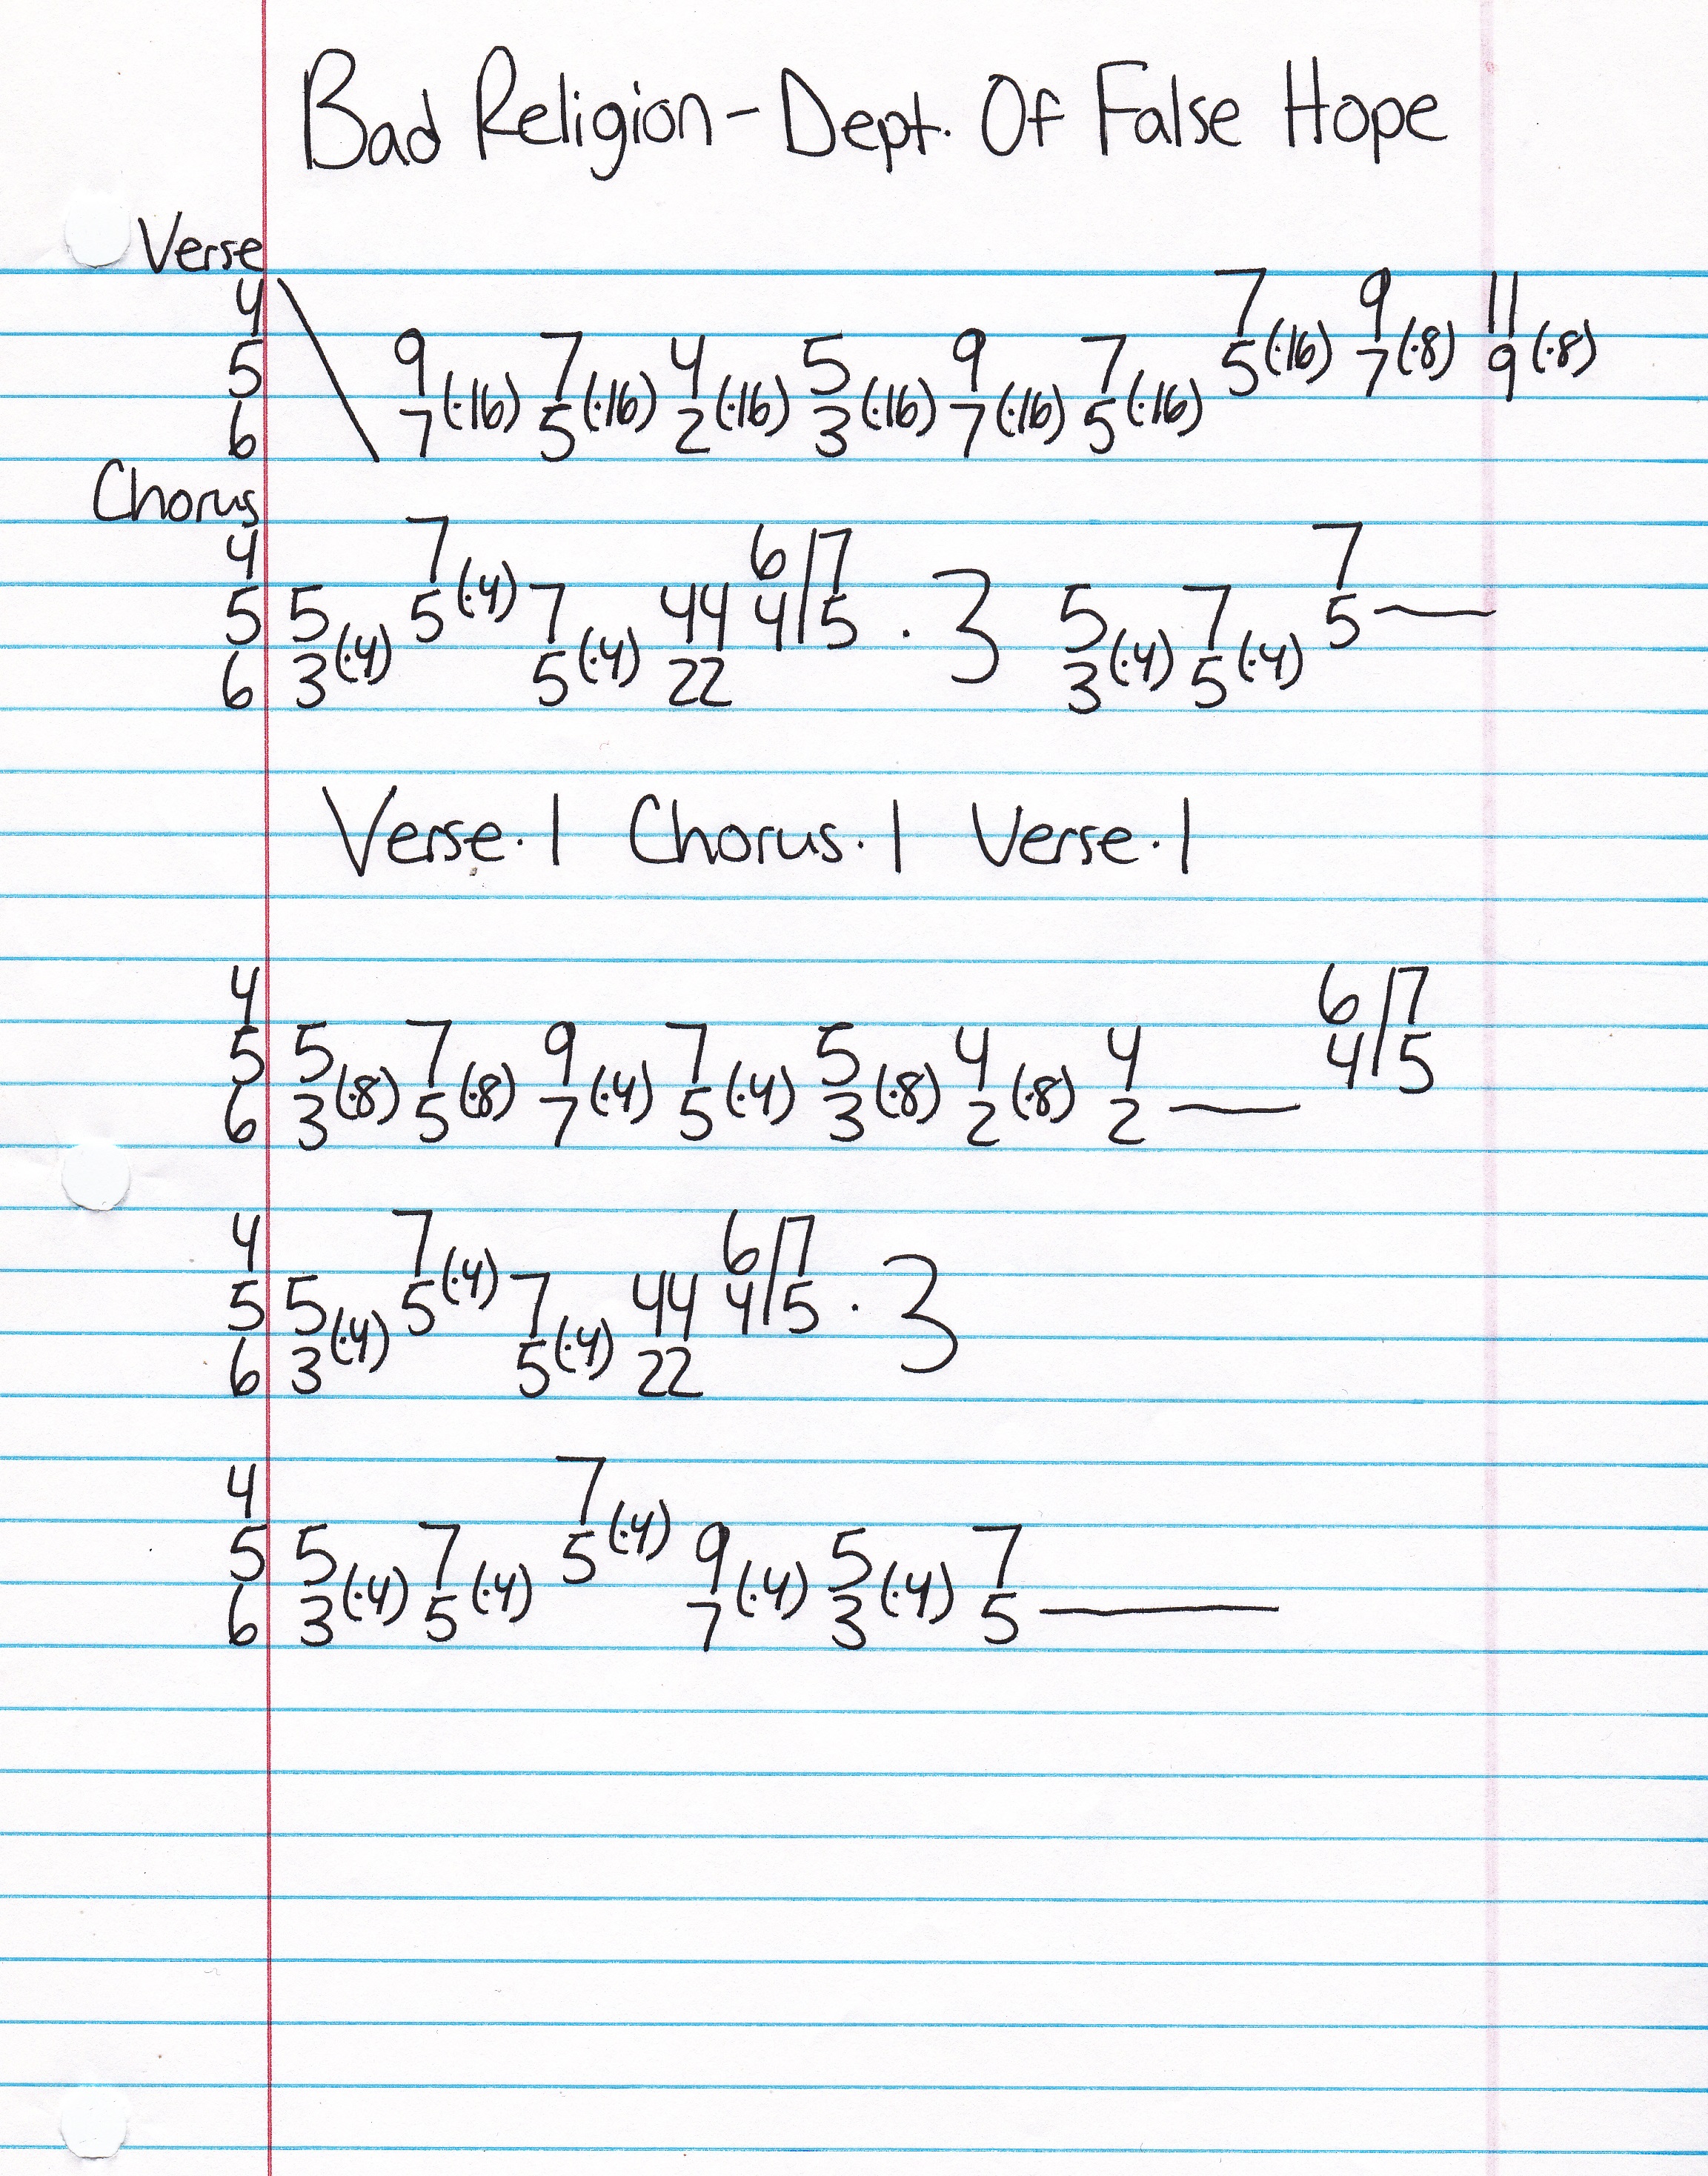 Bad Religion - Dept. Of False Hope
Verse
4 7 9 11
5 9 7 4 5 9 7 5(·16) 7(·8) 9(·8)
6 7(·16) 5(·16) 2(·16) 3(·16) 7(·16) 5(·16)
Chorus
4 7 6/7 7
5 5 5(·4) 7 44 4/5 · 3 5 7 5
6 3(·4) 5(·4) 22 3(·4) 5(·4)
Verse·1 Chorus·1 Verse·1
4 6/7
5 5 7 9 7 5 4 4 4/5
6 3(·8) 5(·8) 7(·4) 5(·4) 3(·8) 2(·8) 2
4 7 6/7
5 5 5(·4) 7 44 4/5 · 3
6 3(·4) 5(·4) 22
4 7
5 5 7 5(·4) 9 5 7
6 3(·4) 5(·4) 7(·4) 3(·4) 5